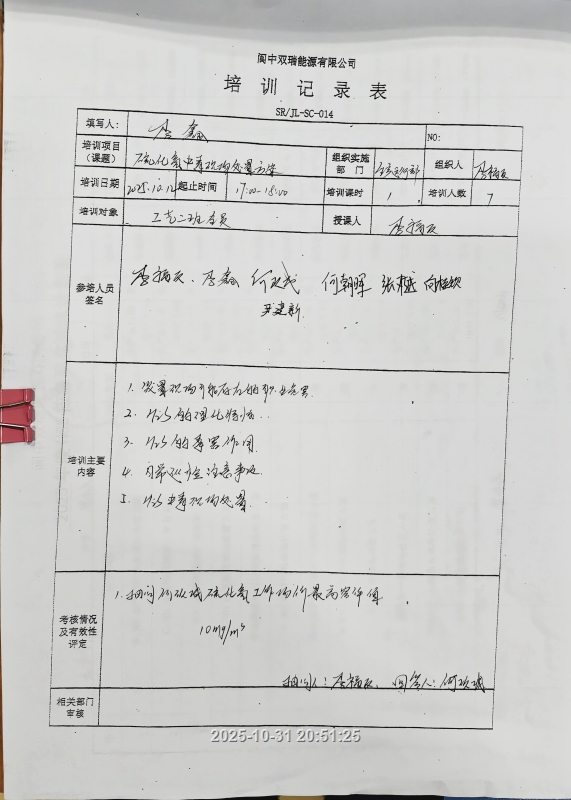 阆中双瑞能源有限公司
培训记录表
SR/JL-SC-014
填写人： 李鑫 NO:
培训项目（课题） 硫化氢中毒现场处置方案 组织实施部门 组织人 李福友
培训日期 2025.10.12 起止时间 17:00-18:00 培训课时 1 培训人数 7
培训对象 工艺二班全员 授课人 李福友
参培人员签名 李福友、李鑫 何 何朝晖 张樾 向
尹建新
培训主要内容
1. 装置现场 存在的职业危害
2. H2S的理化特性.
3. H2S的毒害作用
4. 日常巡检注意事项
5. H2S中毒现场处置.
考核情况及有效性评定
1. 抽问 硫化氢工作场所最高容许值.
10mg/m³
抽问人：李福友、回答人：何
相关部门审核
2025-10-31 20:51:25